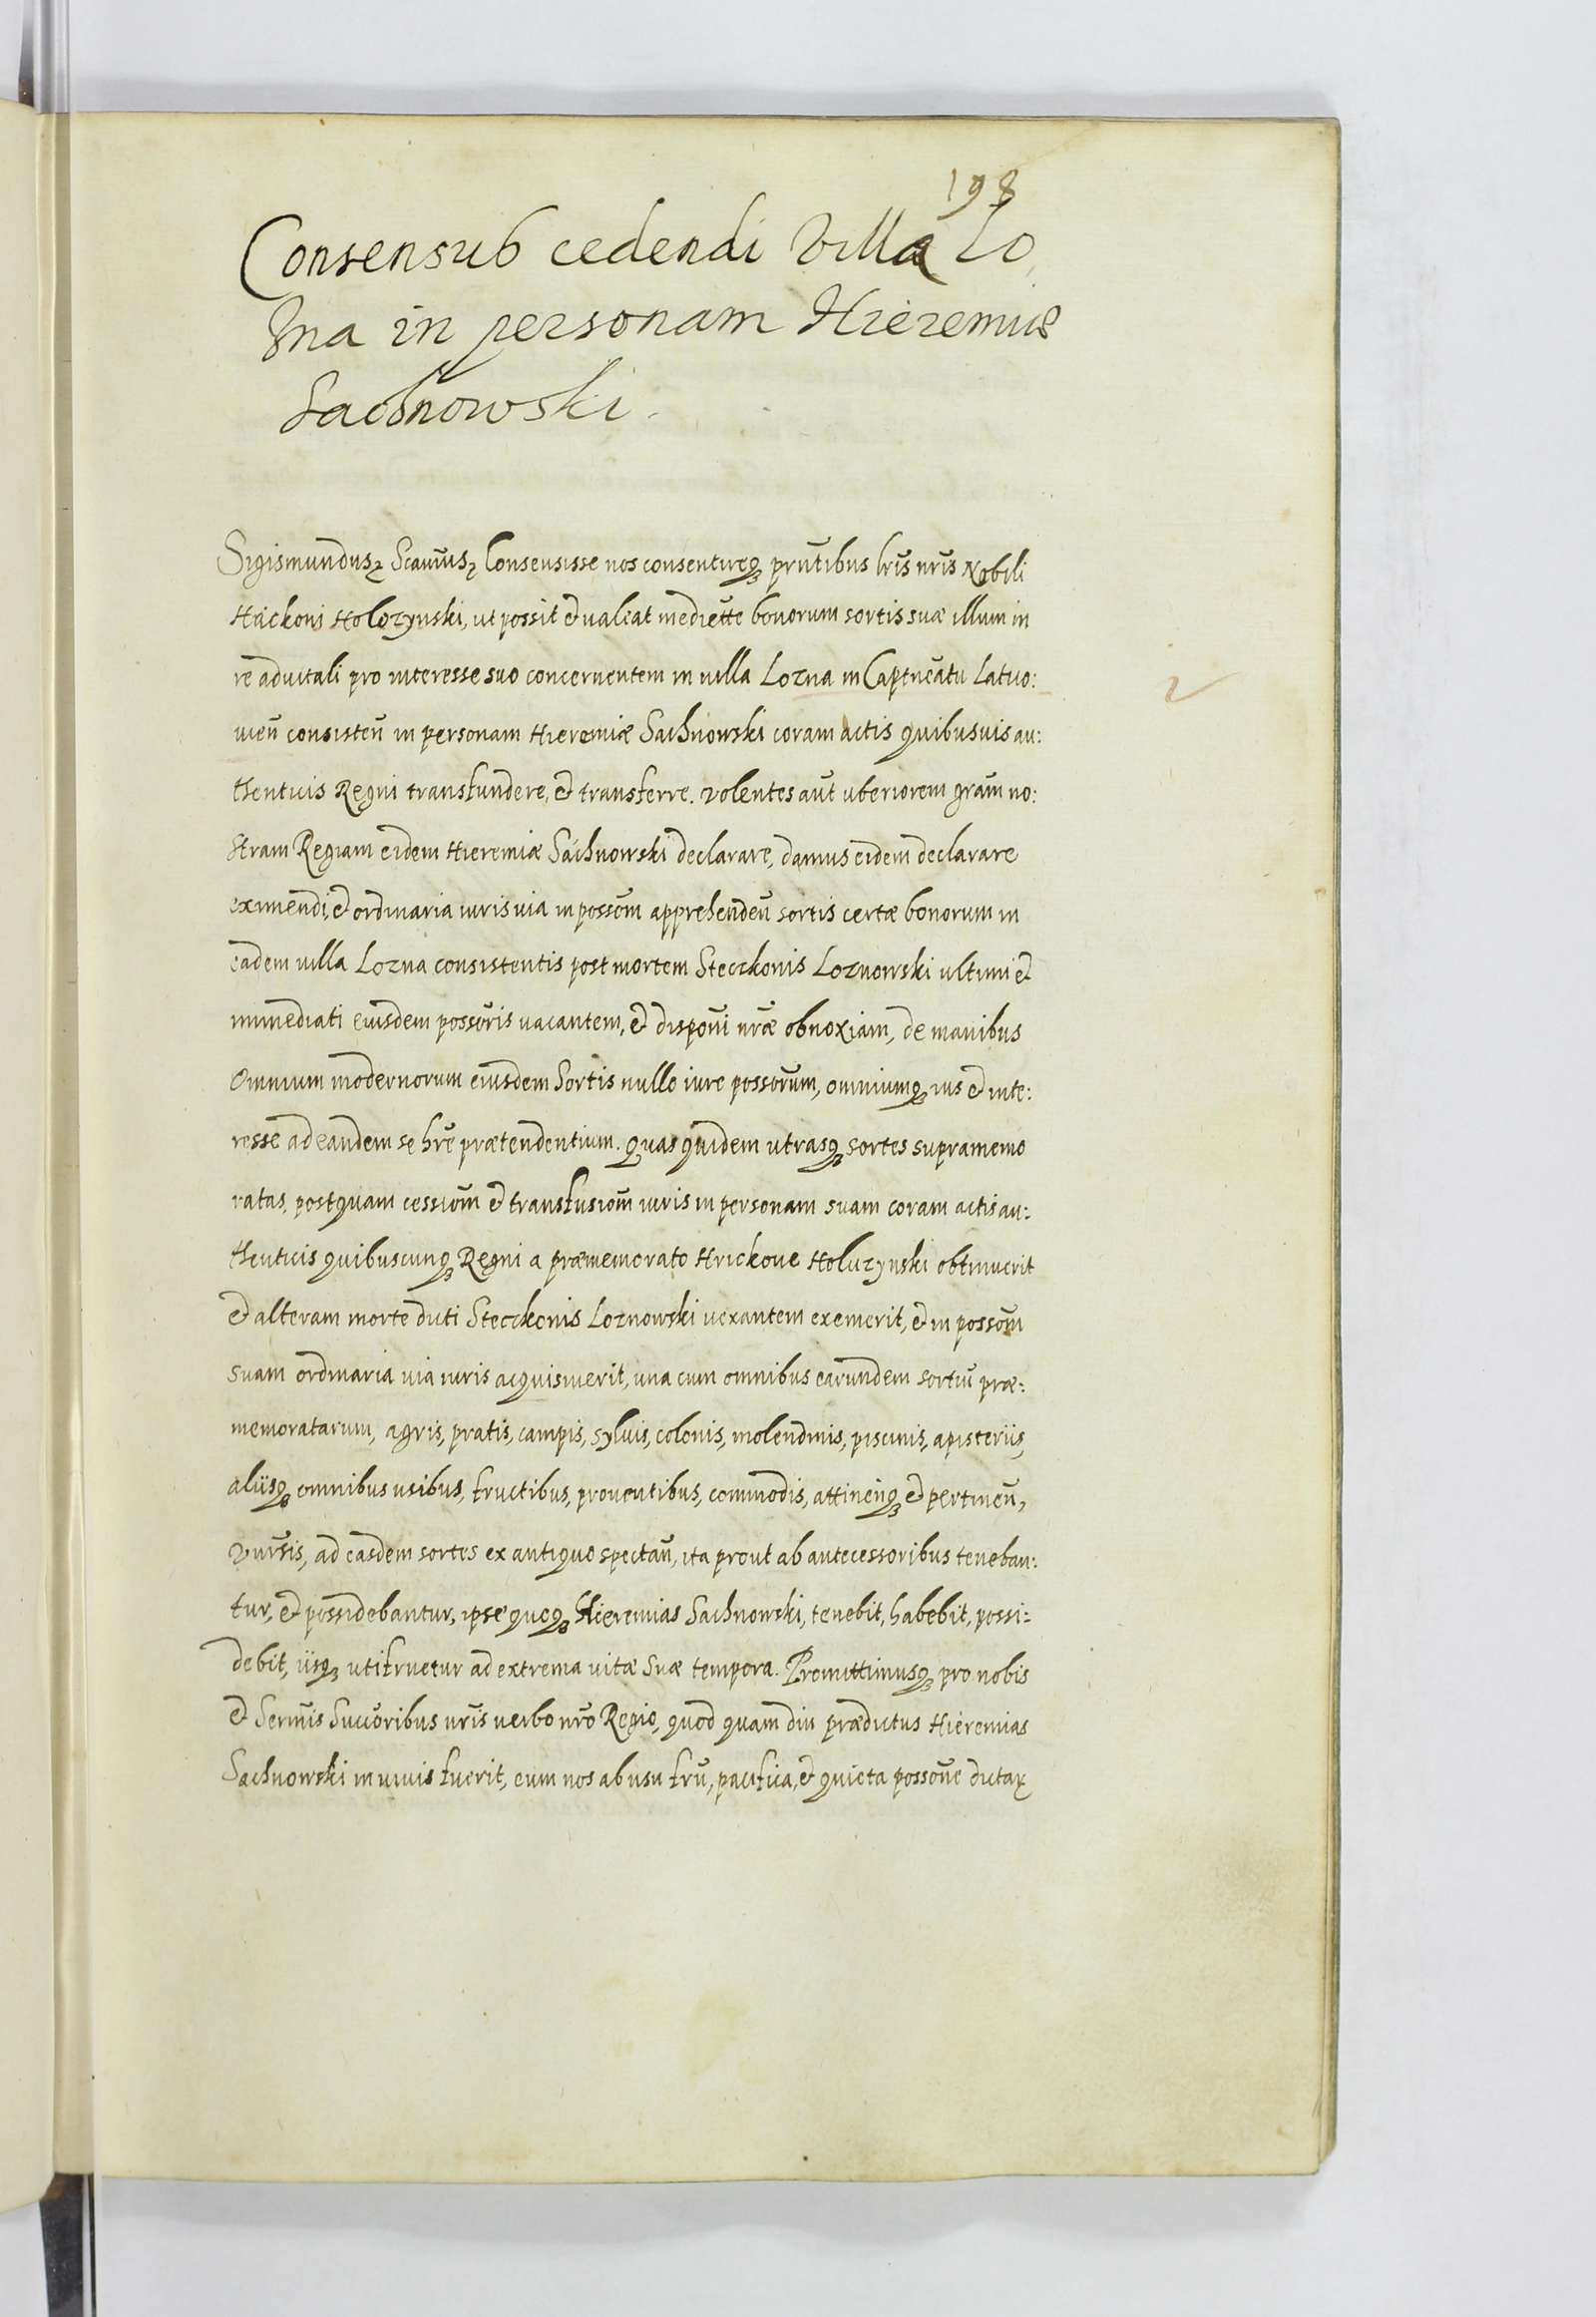 198
Consensus cedendi Villa Lo
zna in personam Hieremiæ
Sachnowski.
Sigismundus, Scamus, Consensisse nos consentireq₃ prñtibus lris nris Nobili
Hrickoni Holozynski, ut possit et valeat medietate bonorum sortis suæ illum in
re advitali pro interesse suo concernentem in villa Lozna in Captneatu Latvo:
vien̄ consisten̄ in personam Hieremiæ Sachnowski coram actis quibusvis au:
thenticis Regni transfundere, et transferre. Volentes aut̄ uberiorem grãm no:
stram Regiam eidem Hieremiæ Sachnowski declarare, damus eidem declarare
eximendi, et ordinaria iuris via in possom̄ apprehenden̄ sortis certæ bonorum in
eadem villa Lozna consistentis post mortem Steczkonis Loznowski ultimi et
immediati eiusdem possoris vacantem, et disponi nræ obnoxiam, de manibus
Omnium modernorum eiusdem Sortis nullo iure possorum, omniumq₃ ius et inte:
resse ad eandem se hre prætendentium. Quas quidem utrasq₃ sortes supramemo
ratas, postquam cessiom̄ et transfusiom̄ iuris in personam suam coram actis au:
thenticis quibuscunq₃ Regni a præmemorato Hrickone Holuzynski obtinuerit
et alteram morte dicti Steczkonis Loznowski vexantem exemerit, et in possom̄
suam ordinaria via iuris acquisiverit, una cum omnibus earundem sortiū præ:
memoratarum, agris, pratis, campis, sylvis, colonis, molendinis, piscinis, apisteriis,
aliisq₃ omnibus usibus, fructibus, proventibus, commodis, attinen̄q₃ et pertinen̄,
Vnirsis, ad easdem sortes ex antiquo spectan̄, ita prout ab antecessoribus teneban:
tur, et possidebantur, ipse quoq₃ Hieremias Sachnowski, tenebit, habebit, possi:
debit, iisq₃ utifruetur ad extrema vitæ suæ tempora. Promittimusq₃ pro nobis
et Sermis Succoribus nris verbo nro Regio, quod quam diu prædictus Hieremias
Sachnowski in vivis fuerit, eum nos ab usu frū, pacifica, et quieta possone dictaꝝ